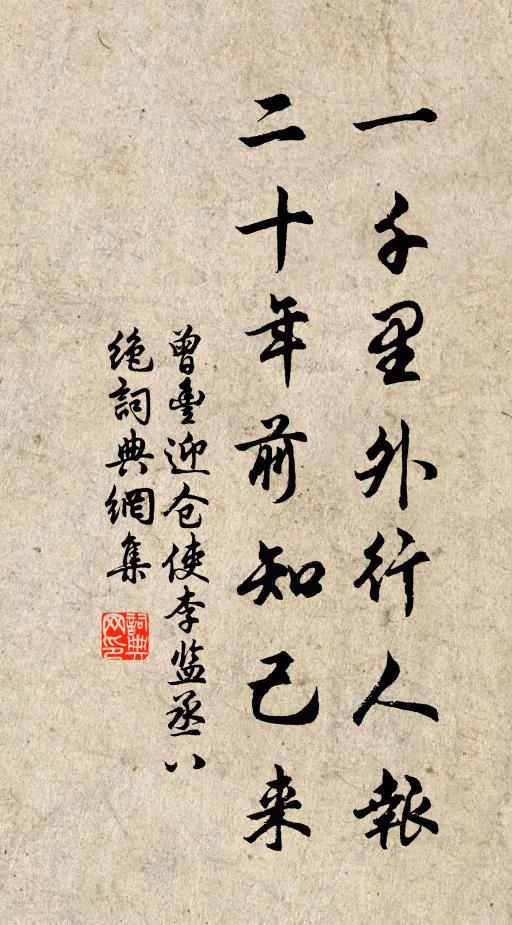 一千里外行人報
二十年前知己来
曾豊迎仓使李监丞八
绝詞典網集
詞典
网印